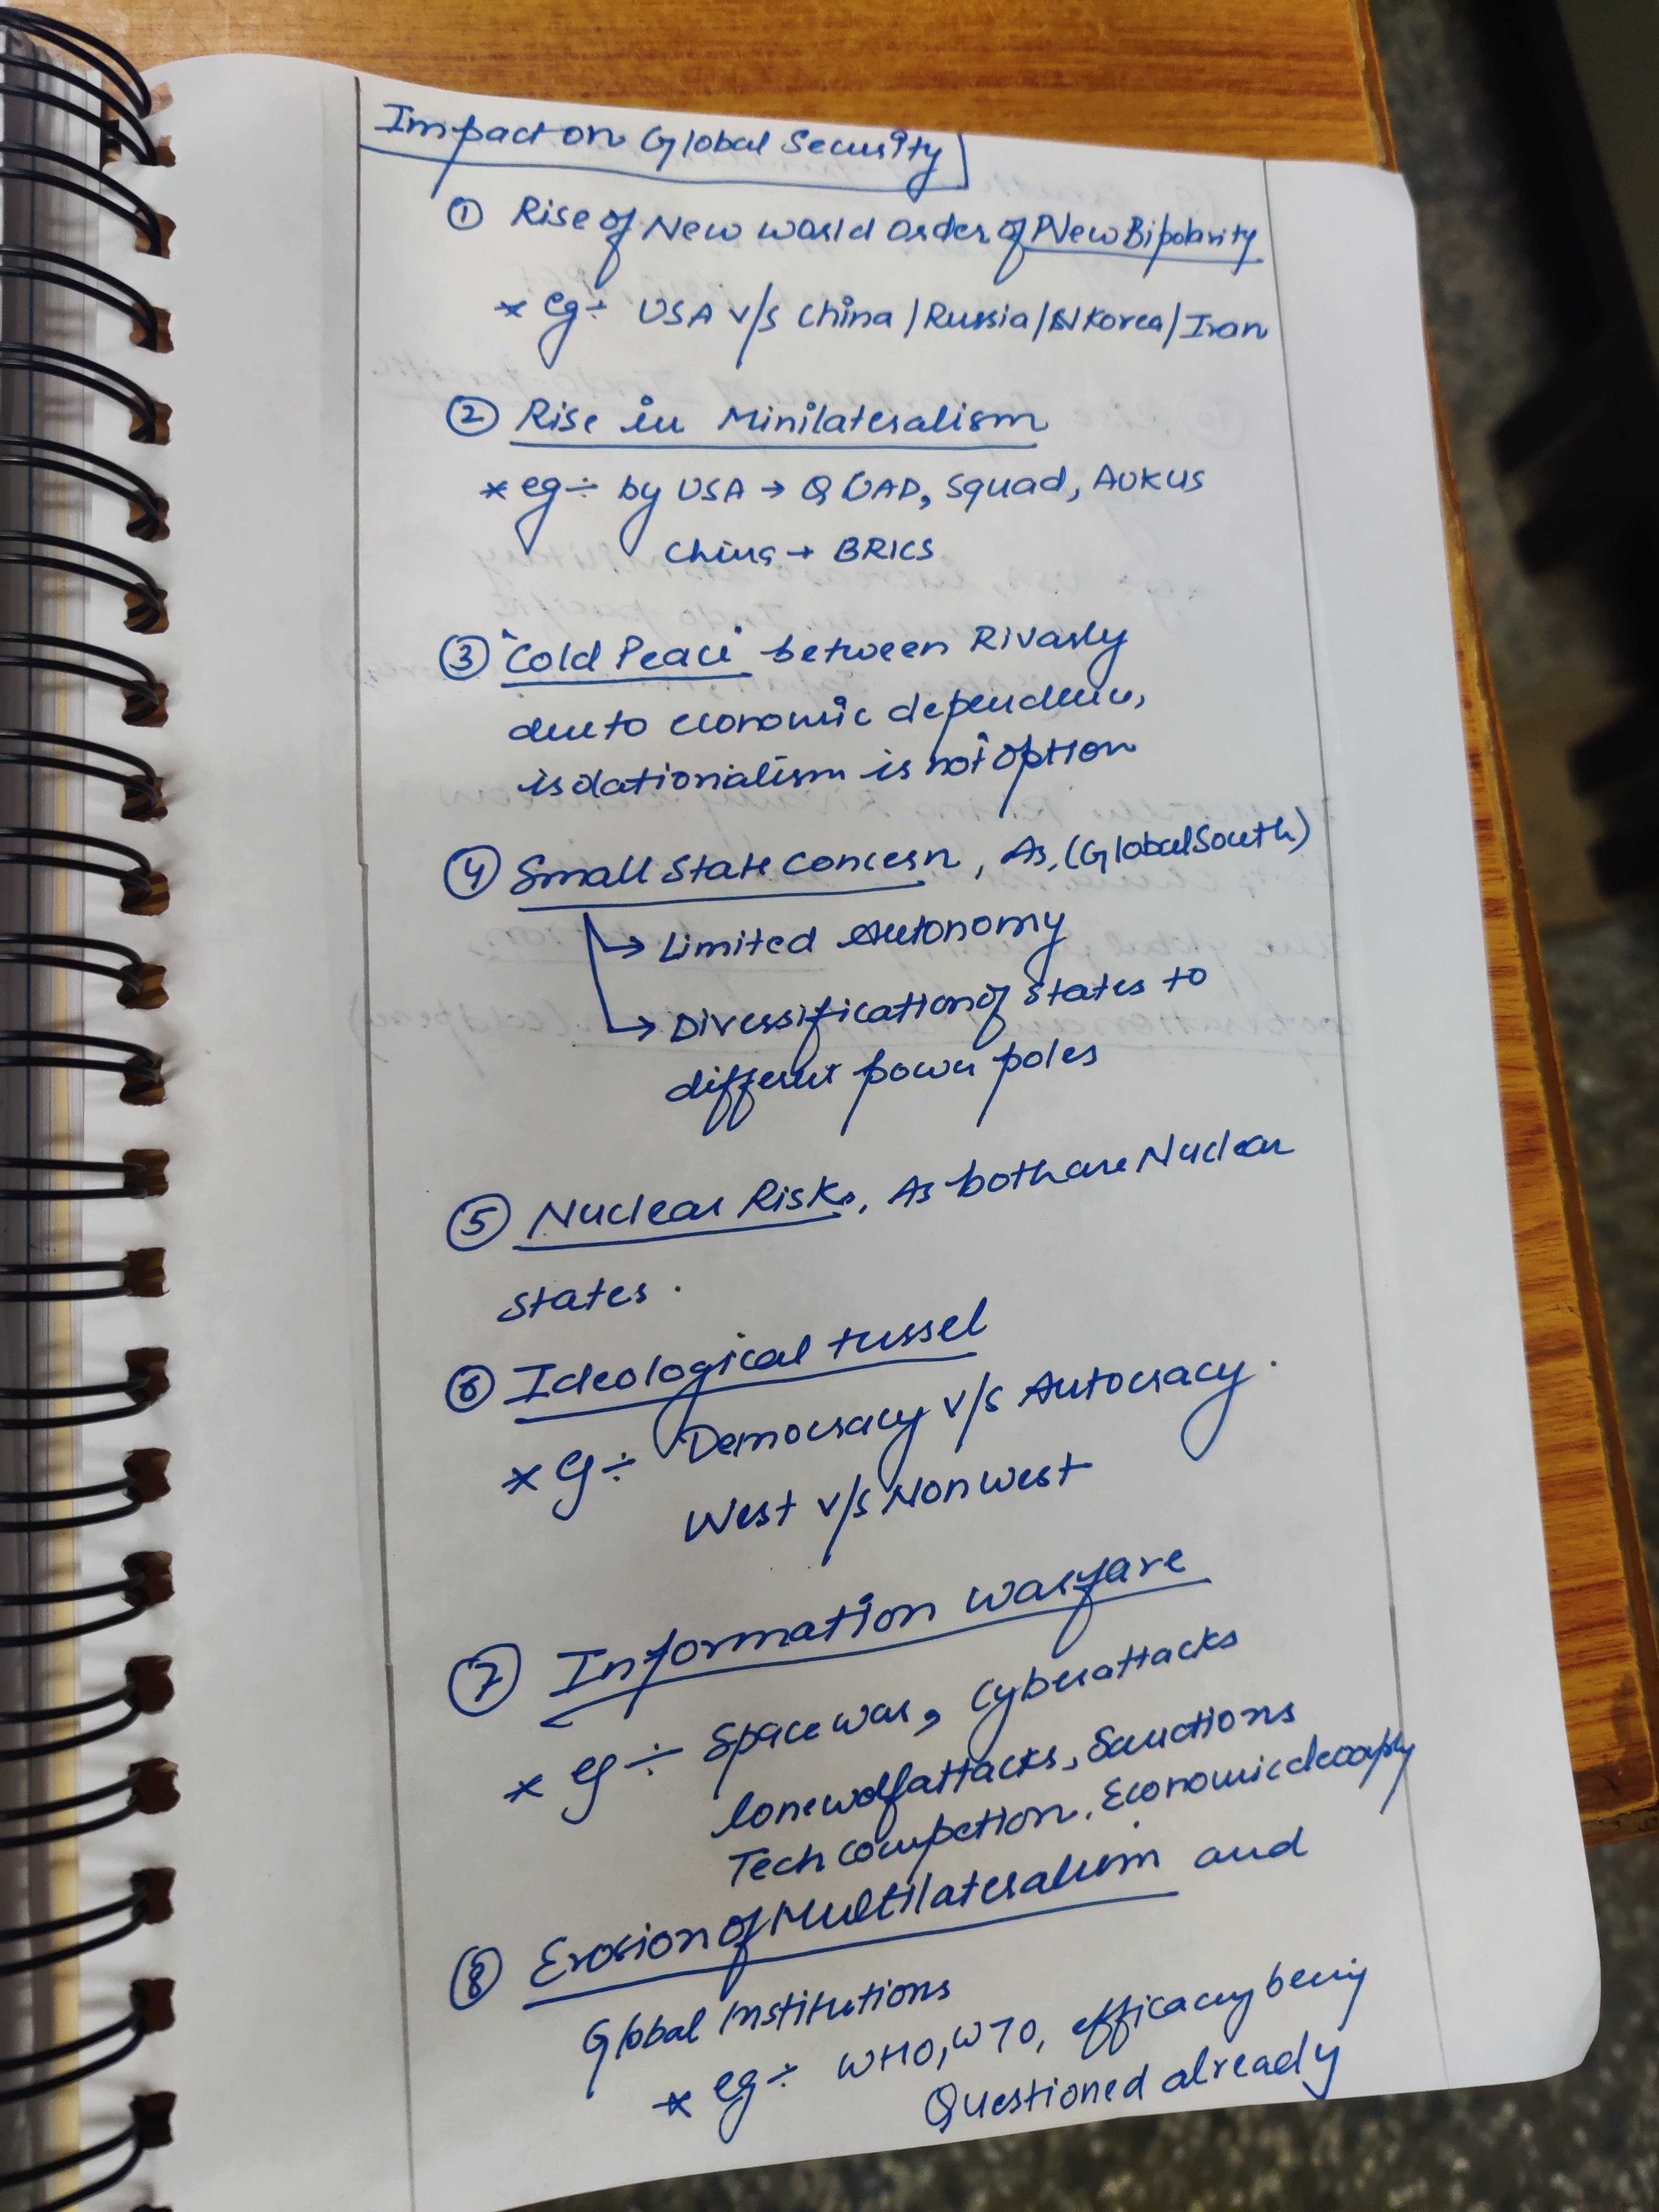 Impact on Global Security
① Rise of New World Order of New Bipolarity
* eg÷ USA v/s China / Russia / N Korea / Iran
② Rise in Minilateralism
* eg÷ by USA → QUAD, Squad, AUKUS
China → BRICS
③ "Cold Peace" between Rivarly
due to economic dependence,
isolationialism is not option
④ Small State Concern, As, (Global South)
→ Limited Autonomy
→ Diversification of States to
different power poles
⑤ Nuclear Risks, As both are Nuclear
States.
⑥ Ideological tussel
* eg÷ Democracy v/s Autocracy.
West v/s Non West
⑦ Information Warfare
* eg÷ Space war, Cyberattacks
lone wolf attacks, Sanctions
Tech compettion, Economic
⑧ Erosion of Multilateralism and
Global Institutions
* eg÷ WHO, WTO, efficacy being
Questioned already